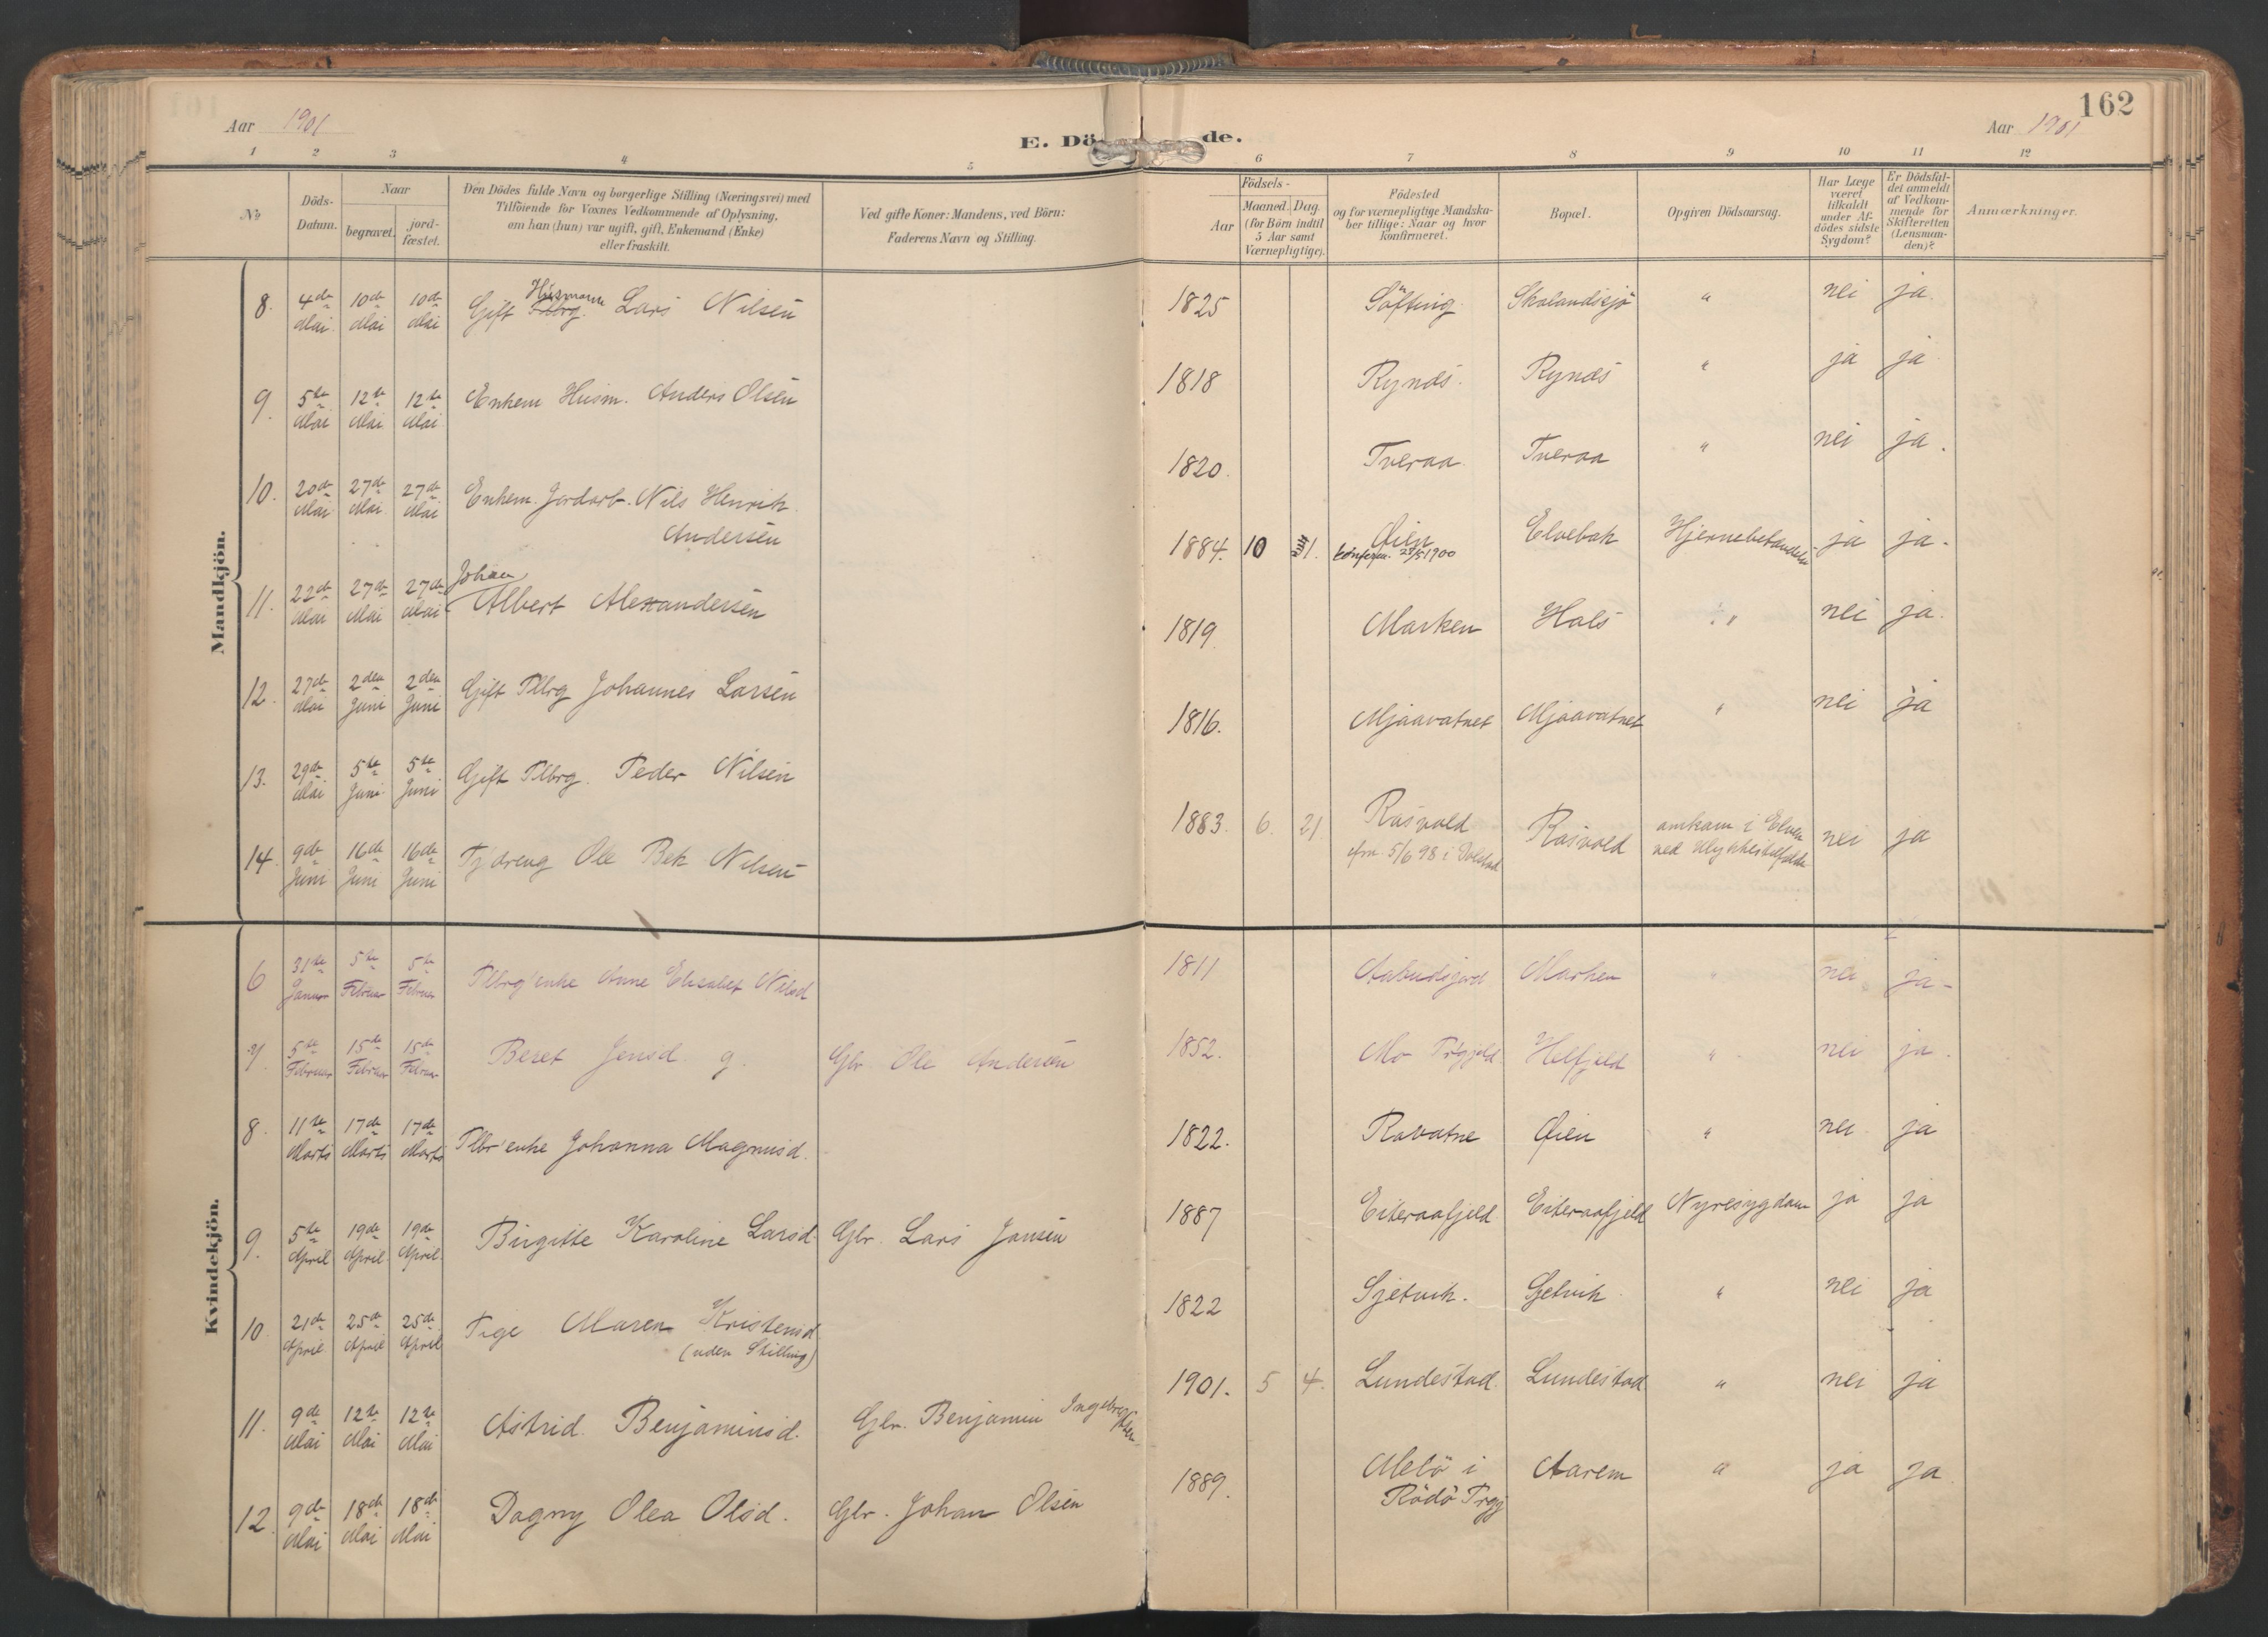 162
Aar 1901
E. Dö
de.
Aar 1901
1 2 3 4 5 6 7 8 9 10 11 12
№
Döds-
Datum.
Naar
begravet.
jord-
fæstet.
Den Dödes fulde Navn og borgerlige Stilling (Næringsvei) med
Tilföiende for Voxnes Vedkommende af Oplysning,
om han (hun) var ugift, gift, Enkemand (Enke)
eller fraskilt.
Ved gifte Koner: Mandens, ved Börn:
Faderens Navn og Stilling.
Födsels-
Aar
Maaned. Dag.
(for Börn indtil
5 Aar samt
Værnepligtige).
Födested
og for værnepligtige Mandska-
ber tillige: Naar og hvor
konfirmeret.
Bopæl.
Opgiven Dödsaarsag.
Har Læge
været
tilkaldt
under Af-
dödes sidste
Sygdom?
Er Dödsfal-
det anmeldt
af Vedkom-
mende for
Skifteretten
(Lensman-
den)?
Anmærkninger.
Mandkjön.
8. 4de Mai 10de Mai 10de Mai Gift Husmann Lars Nilsen
1825 Söfting Skalandsjö " nei ja
9. 5te Mai 12te Mai 12te Mai Enkem Husm. Anders Olsen
1818 Rynds. Rynds " ja ja
10. 20de Mai 27de Mai 27de Mai Enkem. Jordarb. Nils Henrik
Andersen
1820. Tveraa Tveraa " nei ja.
11. 22de Mai 27de Mai 27de Mai Johan
Albert Alexandersen
1884. 10 1. Øien Elvebak ja ja.
1900
12. 27de Mai 2den Juni 2den Juni Gift Pllbrg Johannes Larsen
1819 Marken Hals " nei ja.
13. 29de Mai 5te Juni 5te Juni Gift Pllbrg. Peder Nilsen
1816. Mjaavatnet Mjaavatnet " nei ja
14. 9de Juni 16de Juni 16de Juni Tj'dreng Ole Bek Nilsen
1883. 6. 21 Rasvold Rasvold omkom i Elven nei ja
5/6 98 i Dolstad
Kvindekjön.
6 31te Januar 5te Februar 5te Februar Pllbrg'enke Anne Elisabet Nilsd
1811 Marken " nei ja.
7 5te Februar 15de Februar 15de Februar Beret Jensd. g. Gbr. Ole Andersen
1852. Mo Helfjeld " nei ja.
8. 11te Marts 17de Marts 17de Marts Pllbr'enke Johanna Magnusd.
1822. Ravatne Øien " nei ja
9. 5te April 19de April 19de April Birgitte Karoline Larsd. Gbr. Lars Jansen
1887 Eiteraafjeld Eiteraafjeld Nyresygdom ja ja
10 21de April 25de April 25de April Pige Maren Kristensd
(uden Stilling)
1822 Sjetvik. Sjetvik " nei ja
11. 9de Mai 12te Mai 12te Mai Astrid Benjaminsd. Gbr. Benjamin Ingebrigtsen
1901. 5 4. Lundestad Lundestad " nei ja
12. 9de Mai 18de Mai 18de Mai Dagny Olea Olsd. Gbr. Johan Olsen
1889. Melö i Aarem " ja ja
Rödö Prgj